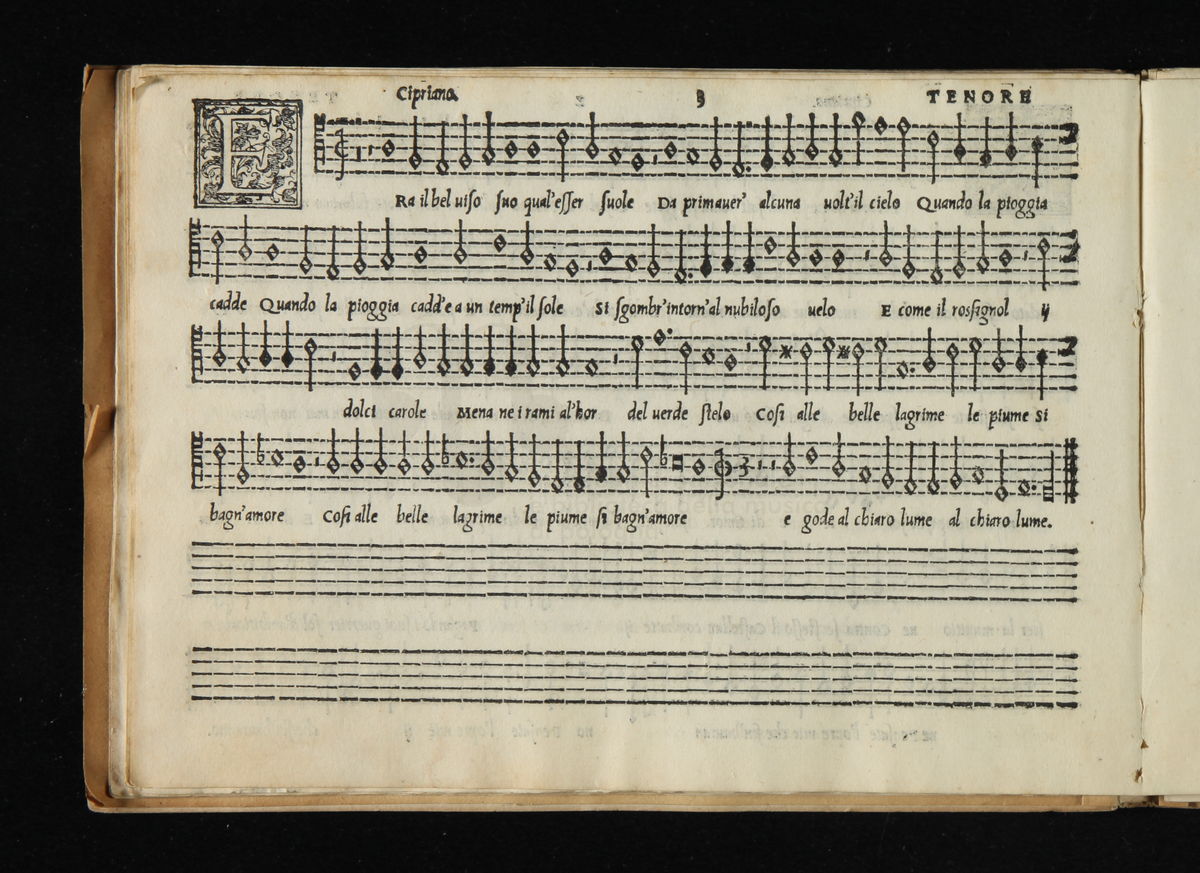 Cipriano. 3 TENORE
E Ra il bel uiſo ſuo qual'eſſer ſuole Da primauer' alcuna uolt'il cielo Quando la pioggia
cadde Quando la pioggia cadd'e a un temp'il ſole Si ſgombr'intorn'al nubiloſo uelo E come il roſſignol ij
dolci carole Mena ne i rami al'hor del uerde ſtelo Coſi alle belle lagrime le piume Si
bagn'amore Coſi alle belle lagrime le piume ſi bagn'amore e gode al chiaro lume al chiaro lume.